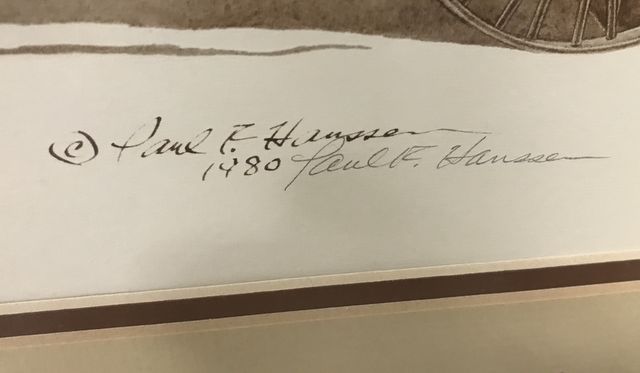 © Paul F. Hanssen
1980 Paul F. Hanssen